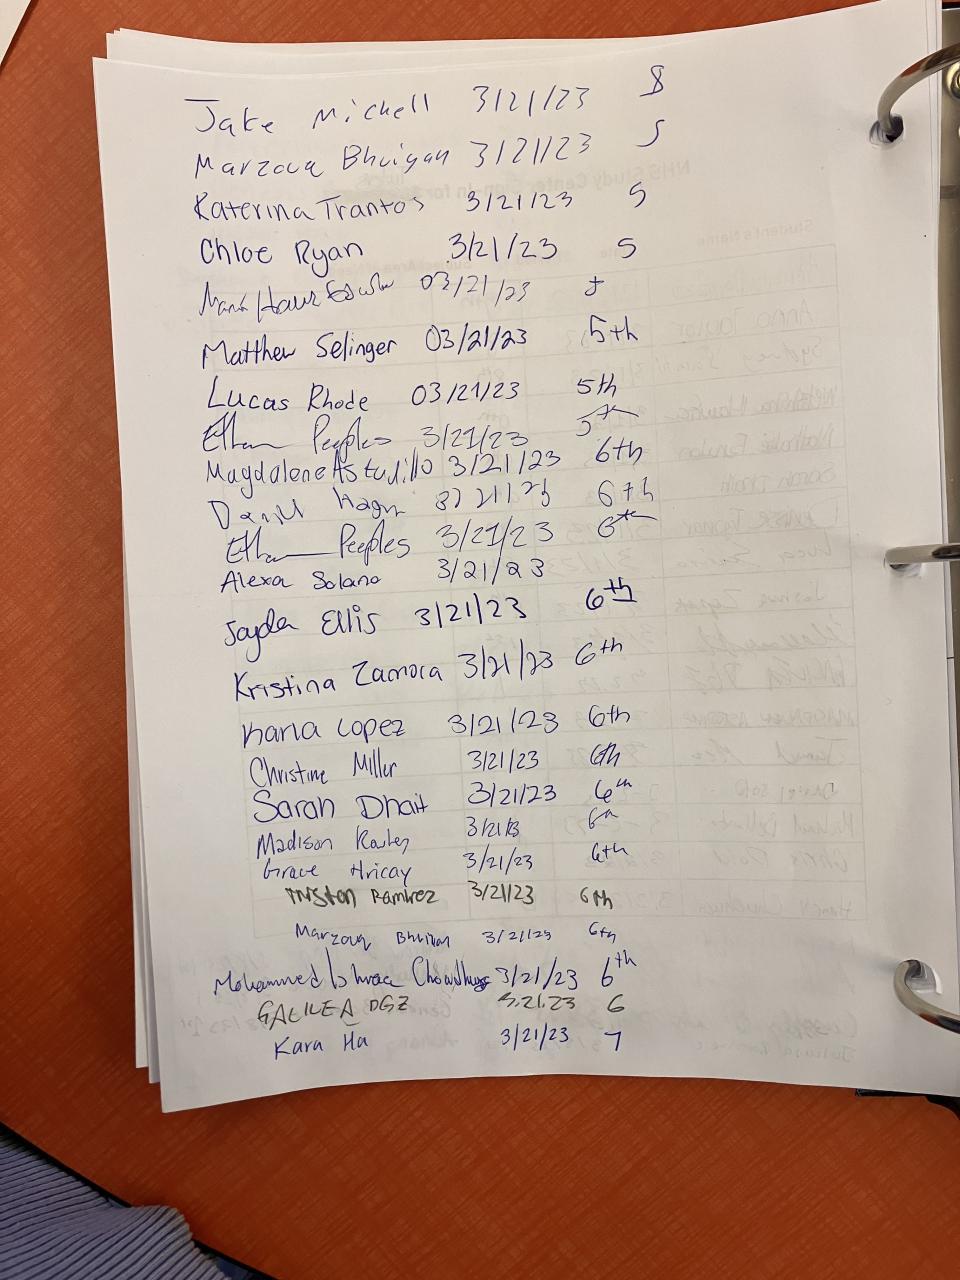 Jake Michell 3/21/23 8
Marzouq Bhuiyan 3/21/23 5
Katerina Trantos 3/21/23 5
Chloe Ryan 3/21/23 5
03/21/23 5
Matthew Selinger 03/21/23 5th
Lucas Rhode 03/21/23 5th
Ethan Peeples 3/21/23 5th
Magdalene Astudillo 3/21/23 6th
Daniel 3/21/23 6th
Ethan Peeples 3/21/23 6th
Alexa Solano 3/21/23
Jayden Ellis 3/21/23 6th
Kristina Zamora 3/21/23 6th
Karla Lopez 3/21/23 6th
Christine Miller 3/21/23 6th
Sarah Dhait 3/21/23 6th
Madison 3/21/23 6th
Grace Hricay 3/21/23 6th
Tristan Ramirez 3/21/23 6th
Marzouq Bhuiyan 3/21/23 6th
Mohammed Ishraq Chowdhury 3/21/23 6th
GALILEA DGZ 3.21.23 6
Kara Ha 3/21/23 7